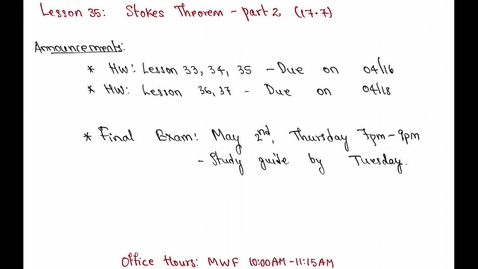 Lesson 35: Stokes Theorem - part 2 (17.7)
Announcements:
* HW: Lesson 33, 34, 35 - Due on 04/16
* HW: Lesson 36, 37 - Due on 04/18
* Final Exam: May 2nd, Thursday 7pm-9pm
- Study guide by Tuesday.
Office Hours: MWF 10:00AM-11:15AM